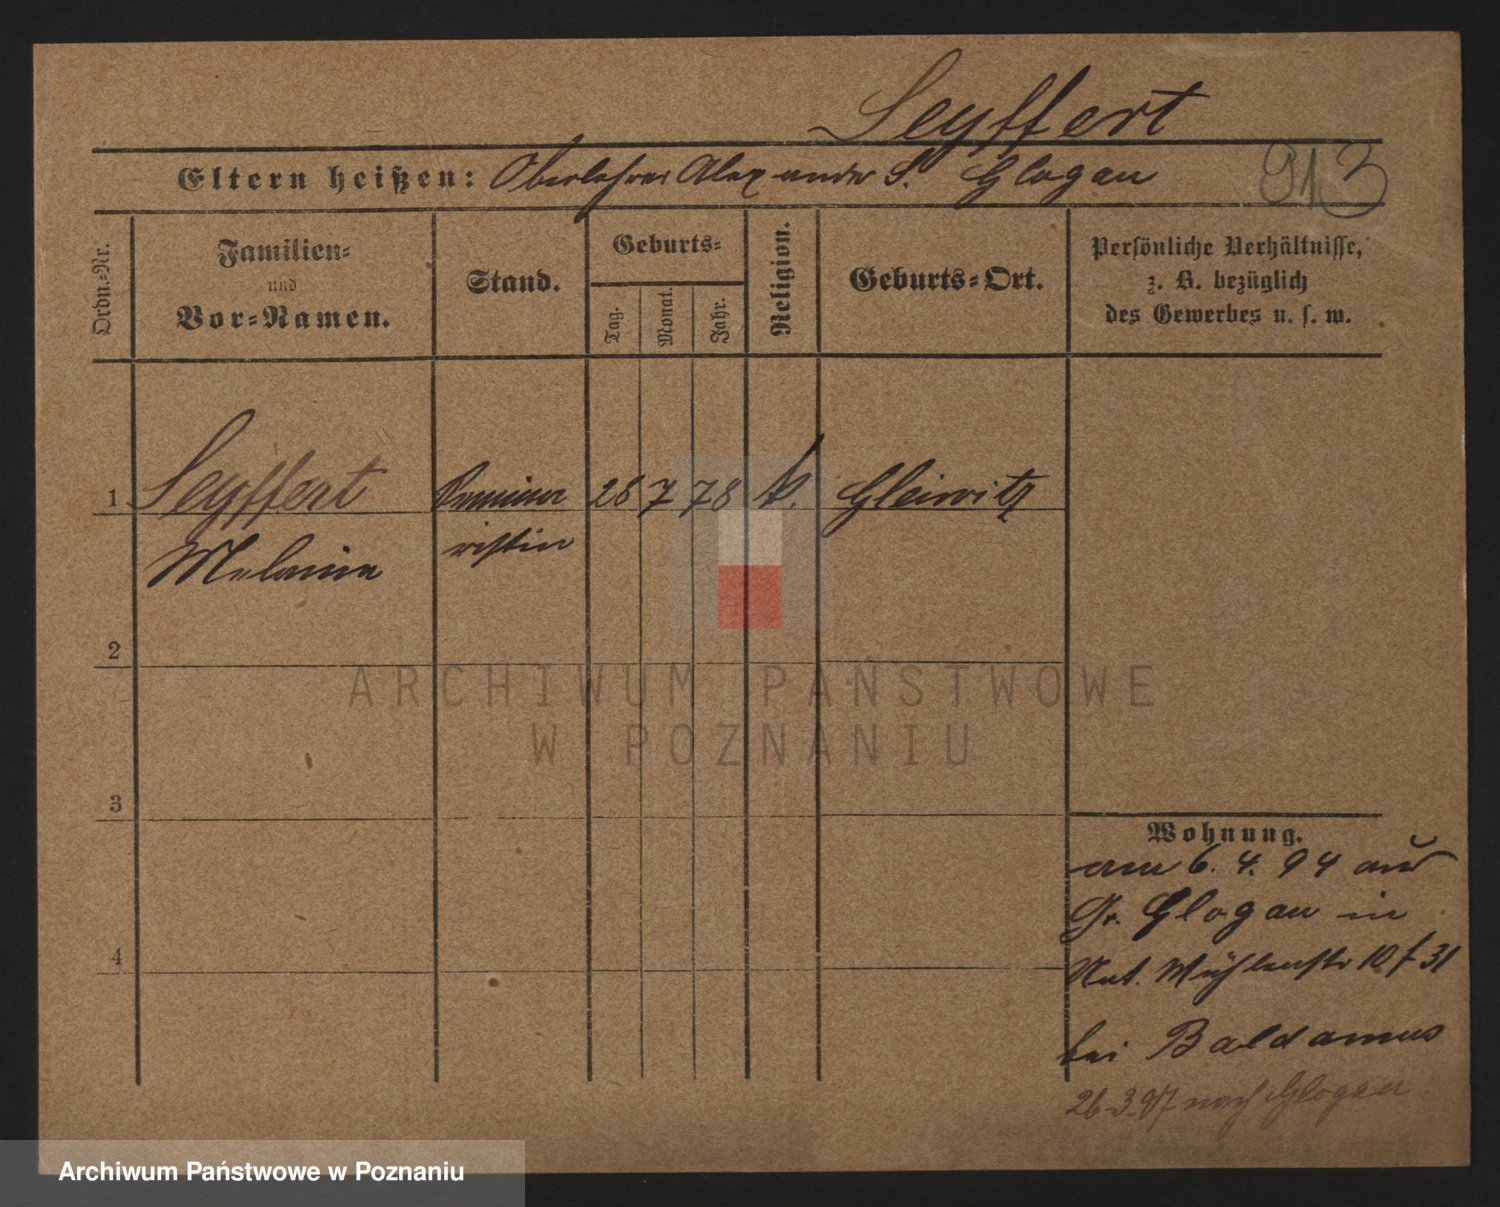 Seyffert
Eltern heißen: Oberlehrer Alexander S. Glogau
913
Ordn.-Nr.
Familien-
und
Vor-Namen.
Stand.
Geburts-
Tag.
Monat.
Jahr.
Religion.
Geburts-Ort.
Persönliche Verhältnisse,
z. B. bezüglich
des Gewerbes u. s. w.
1 Seyffert Seminar 28 7 78 k. Gleiwitz
Melanie ristin
2
ARCHIWUM PAŃSTWOWE
W POZNANIU
3
4
Wohnung.
am 6. 4. 94 aus
Gr. Glogau in
Mühlenstr 10 f 31
bei Baldamus
26.3.97 nach Glogau
Archiwum Państwowe w Poznaniu